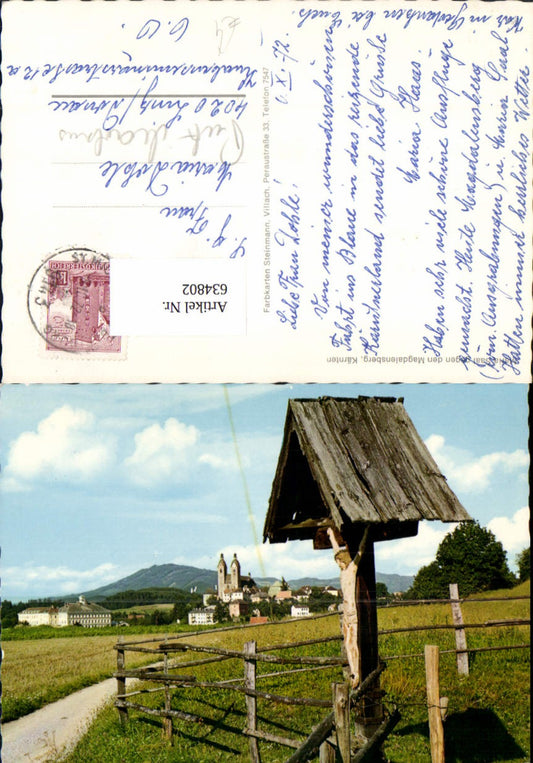 Liebe Frau Dohle!
6. X. 72.
Von meiner wunderschönen
Fahrt ins Blaue in das reizende
Kärntnerland sendet liebe Grüße
Maria Haas
Haben sehr viele schöne Ausflüge
gemacht. Heute Magdalensberg
(röm. Ausgrabungen) u. Maria Saal
Hatten immer herrliches Wetter.
War in Gedanken bei Euch.
S. g.
Frau
Maria Dohle
4020 Linz/Donau
12 a
O.Ö.
Farbkarten Steinmann, Villach, Peraustraße 33, Telefon 7547
gegen den Magdalensberg, Kärnten
Artikel Nr.
634802